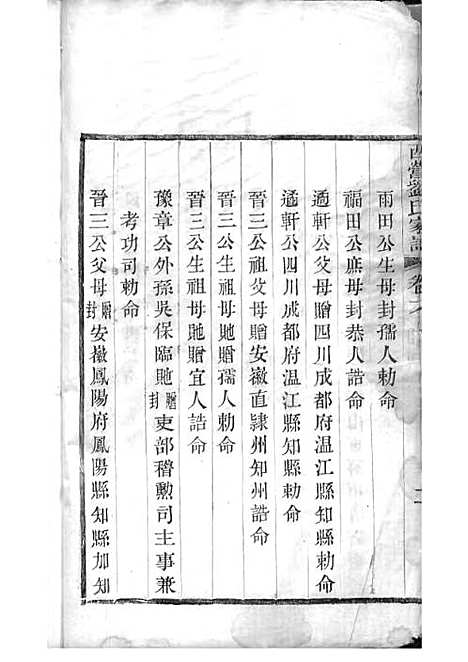 西營劉氏家譜 卷八
雨田公生母封孺人勅命
福田公庶母封恭人誥命
遹軒公父母贈四川成都府温江縣知縣勅命
遹軒公四川成都府温江縣知縣勅命
晉三公祖父母贈安徽直隷州知州誥命
晉三公生祖母貤贈孺人勅命
晉三公生祖母貤贈宜人誥命
豫章公外孫吳保臨貤贈封吏部稽勲司主事兼
考功司勅命
晉三公父母贈封安徽鳳陽府鳳陽縣知縣加知